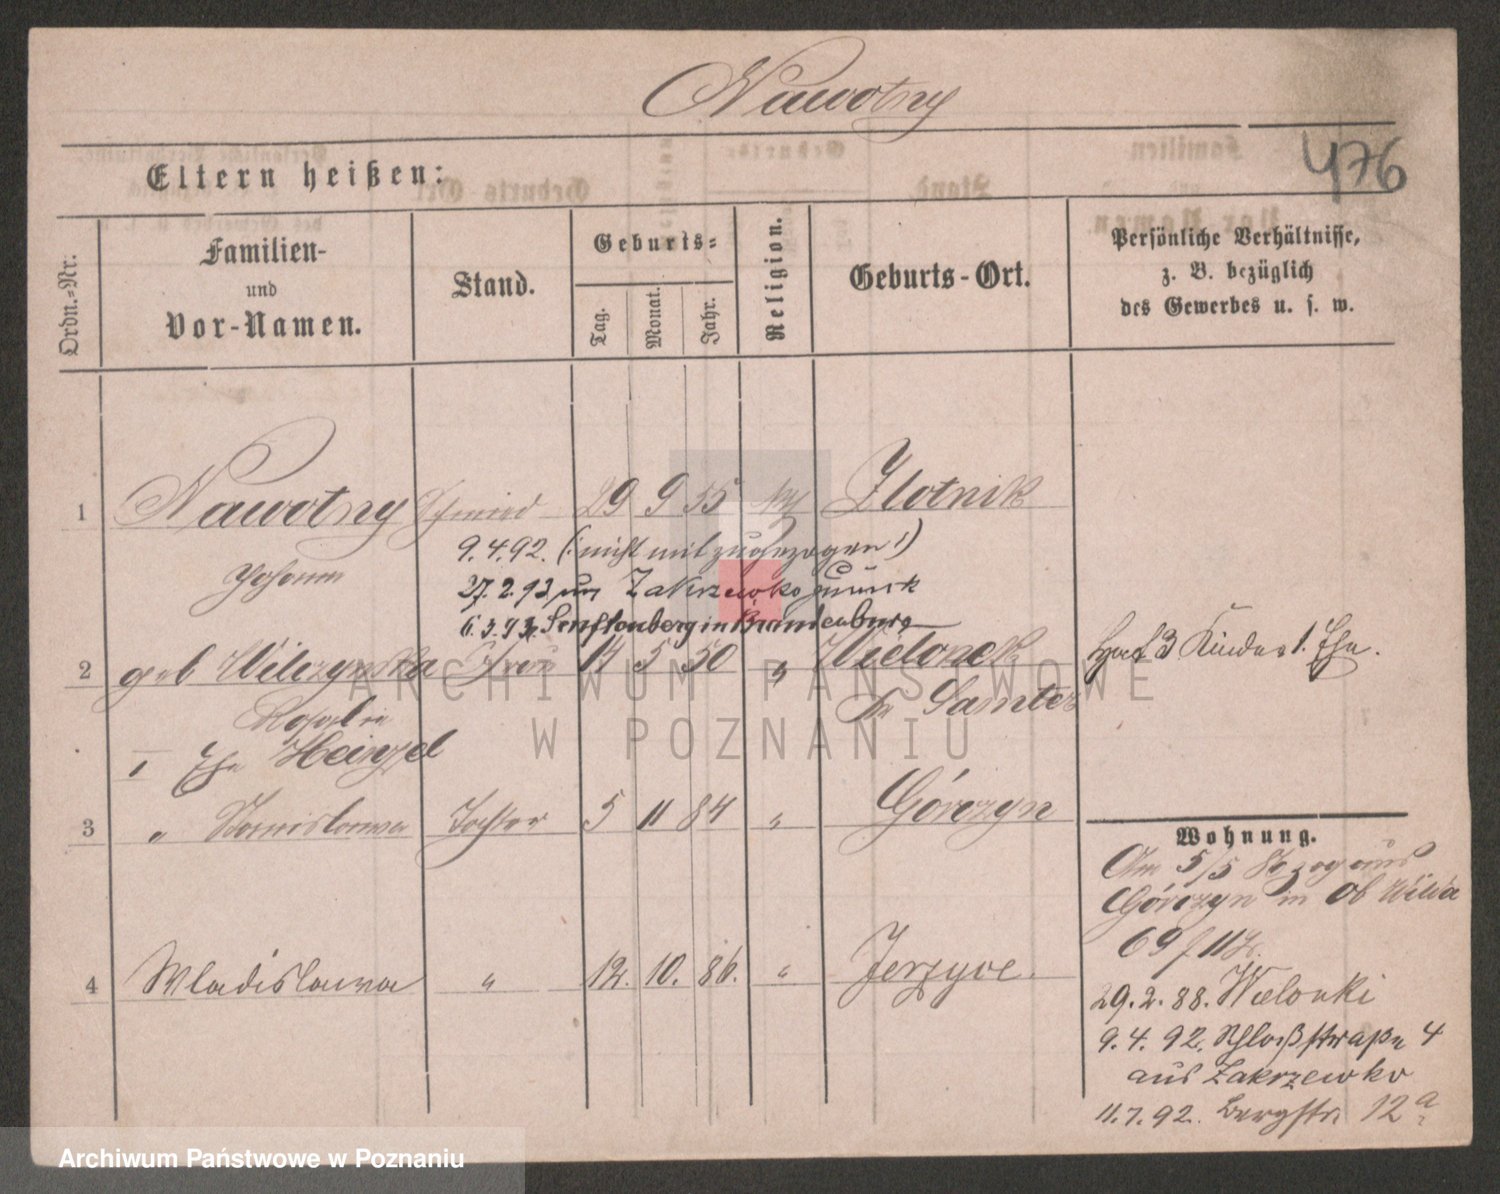 Nawotny
476
Eltern heißen:
Ordn.-Nr.
Familien-
und
Vor-Namen.
Stand.
Geburts-
Tag.
Monat.
Jahr.
Religion.
Geburts-Ort.
Persönliche Verhältnisse,
z. B. bezüglich
des Gewerbes u. s. w.
1 Nawotny Schmied 29 9 55 Zlotnik
Johann
9.4.92. (: nicht mit zugezogen :)
27.2.93 Zakrzewko zurück
6.3.93 Senftenberg in Brandenburg
2 geb Wilczynska Frau 14 5 50 " Wielonek
Kr Samter
Hat 3 Kinder 1. Ehe.
Rosalie
I Ehe Heinzel
3 " Stanislawa Tochter 5 11 84 " Górczyn
4 Wladislawa " 12. 10. 86. " Jerzyce.
Wohnung.
Am 5/5 86 zog aus
Górczyn in Ob Wilda
69
29.2.88. Wielonki
9.4.92. Schloßstraße 4
aus Zakrzewko
11.7.92. Bergstr. 12a
ARCHIWUM PAŃSTWOWE
W POZNANIU
Archiwum Państwowe w Poznaniu